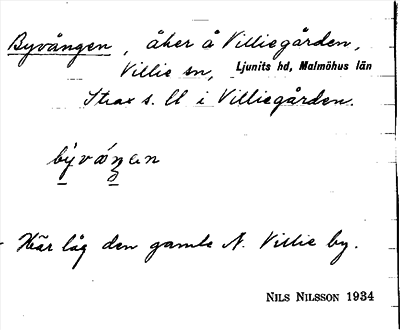 Byvången, åker å Villiegården,
Villie sn, Ljunits hd, Malmöhus län
Strax s. ll i Villiegården.
býváŋan
Här låg den gamla N. Villie by.
NILS NILSSON 1934